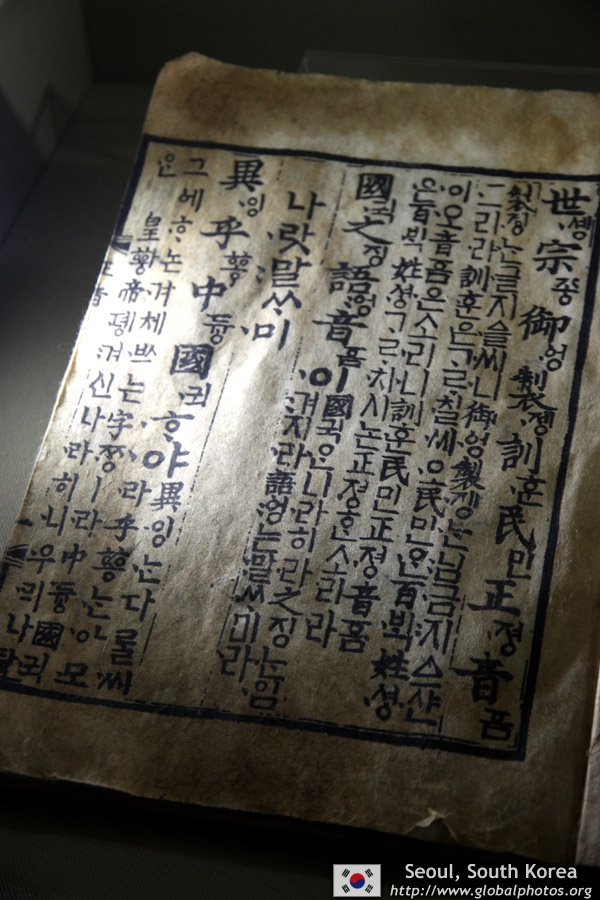 世솅宗종御엉製졩訓훈民민正졍音흠
製졩는글지ᅀᅳᆯ씨니御엉製졩는님금지ᅀᅳ샨
그리라訓훈은ᄀᆞᄅᆞ칠씨오民민ᄋᆞᆫ百ᄇᆡᆨ姓셩
이오音흠은소리니訓훈民민正졍音흠
은百ᄇᆡᆨ姓셩ᄀᆞᄅᆞ치시논正졍ᄒᆞᆫ소리라
國귁之징語엉音흠이
國귁ᄋᆞᆫ나라히라之징ᄂᆞᆫ입
겨지라語엉는말ᄊᆞ미라
나랏말ᄊᆞ미
異잉乎ᅘᅩᆼ中듕國귁ᄒᆞ야
異잉ᄂᆞᆫ다ᄅᆞᆯ씨
라乎ᅘᅩᆼᄂᆞᆫ아모
그ᅌᅦᄒᆞ논겨체ᄡᅳ는字ᄍᆞᆼㅣ라中듕國귁
ᄋᆞᆫ皇ᅘᅪᆼ帝뎽겨신나라히니우리나
Seoul, South Korea
http://www.globalphotos.org